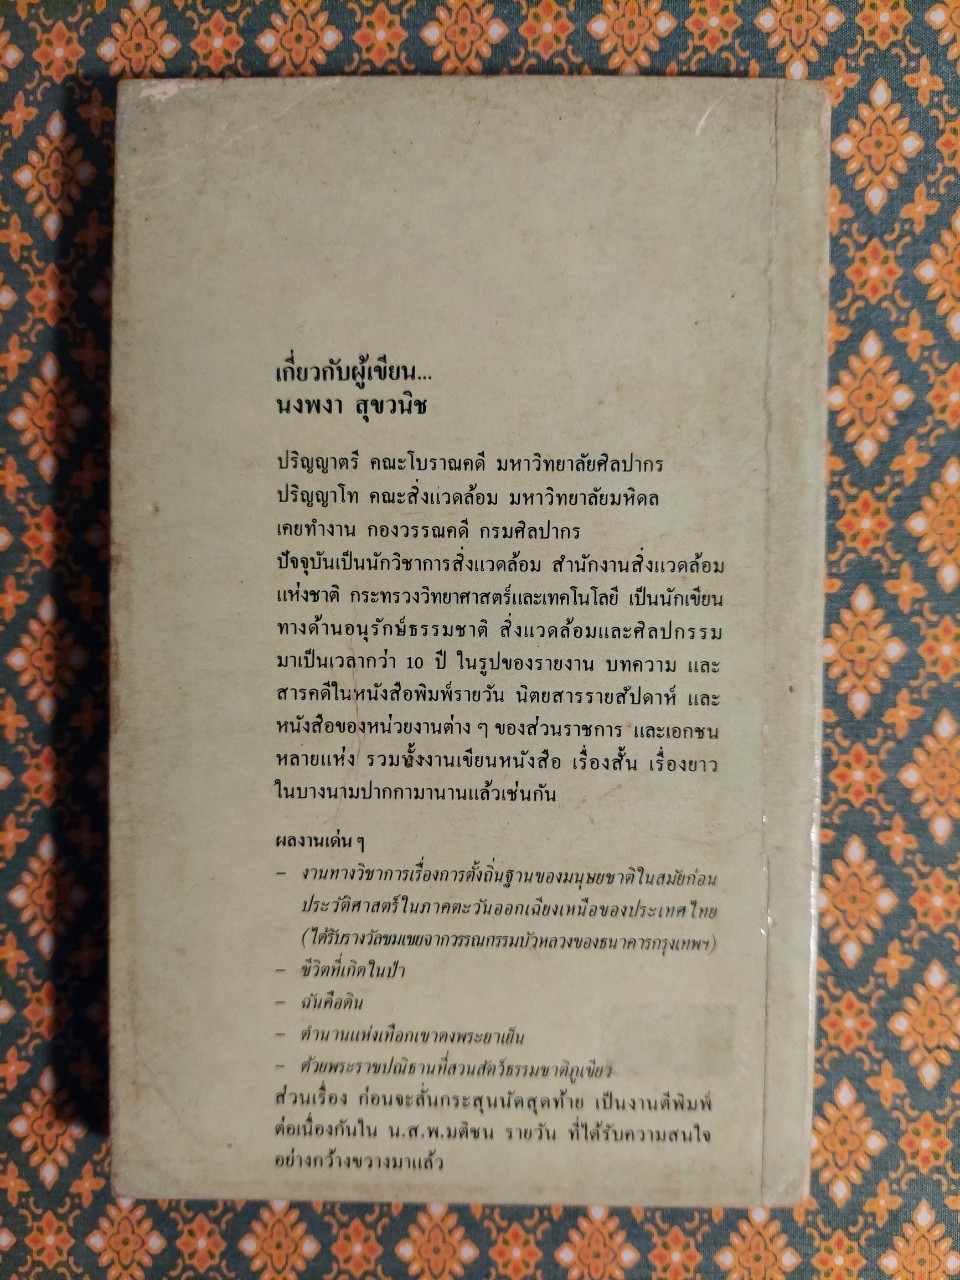 เกี่ยวกับผู้เขียน...
นงพงา สุขวนิช
ปริญญาตรี คณะโบราณคดี มหาวิทยาลัยศิลปากร
ปริญญาโท คณะสิ่งแวดล้อม มหาวิทยาลัยมหิดล
เคยทำงาน กองวรรณคดี กรมศิลปากร
ปัจจุบันเป็นนักวิชาการสิ่งแวดล้อม สำนักงานสิ่งแวดล้อม
แห่งชาติ กระทรวงวิทยาศาสตร์และเทคโนโลยี เป็นนักเขียน
ทางด้านอนุรักษ์ธรรมชาติ สิ่งแวดล้อมและศิลปกรรม
มาเป็นเวลากว่า 10 ปี ในรูปของรายงาน บทความ และ
สารคดีในหนังสือพิมพ์รายวัน นิตยสารรายสัปดาห์ และ
หนังสือของหน่วยงานต่าง ๆ ของส่วนราชการ และเอกชน
หลายแห่ง รวมทั้งงานเขียนหนังสือ เรื่องสั้น เรื่องยาว
ในบางนามปากกามานานแล้วเช่นกัน
ผลงานเด่น ๆ
– งานทางวิชาการเรื่องการตั้งถิ่นฐานของมนุษยชาติในสมัยก่อน
ประวัติศาสตร์ในภาคตะวันออกเฉียงเหนือของประเทศไทย
(ได้รับรางวัลชมเชยจาการรณกรรมบัวหลวงของธนาคารกรุงเทพฯ)
– ชีวิตที่เกิดในป่า
– ฉันคือดิน
– ตำนานแห่งเทือกเขาดงพระยาเย็น
– ด้วยพระราชปณิธานที่สวนสัตว์ธรรมชาติภูเขียว
ส่วนเรื่อง ก่อนจะลั่นกระสุนนัดสุดท้าย เป็นงานตีพิมพ์
ต่อเนื่องกันใน น.ส.พ.มติชน รายวัน ที่ได้รับความสนใจ
อย่างกว้างขวางมาแล้ว